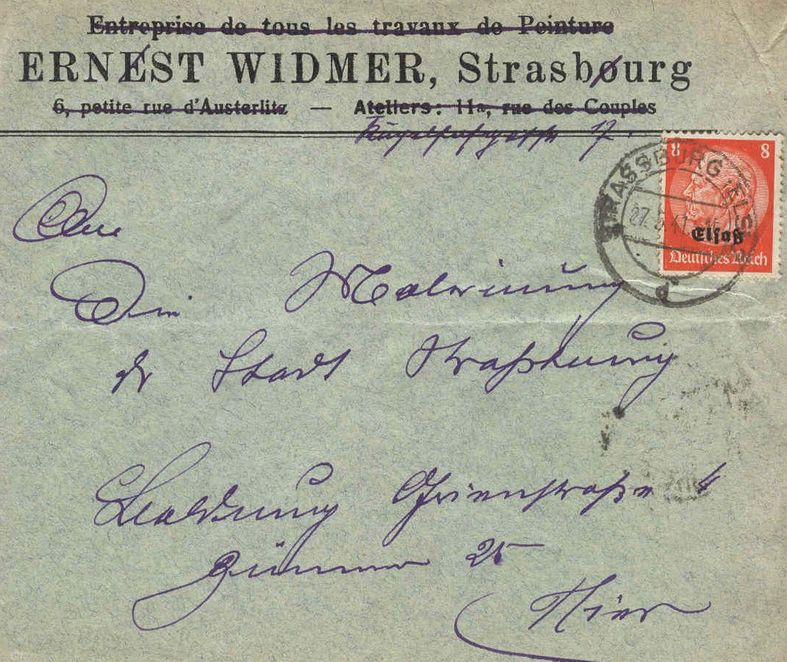 Entreprise de tous les travaux de Peinture
ERNEST WIDMER, Strasbourg
6, petite rue d'Austerlitz — Ateliers: 11a, rue des Couples
17.
8 8
STRASSBURG (ELS)
27. 41
Elsaß
Deutsches Reich
d
An
Die Malerinnung
der Stadt Straßburg
Zimmer 25
Hier